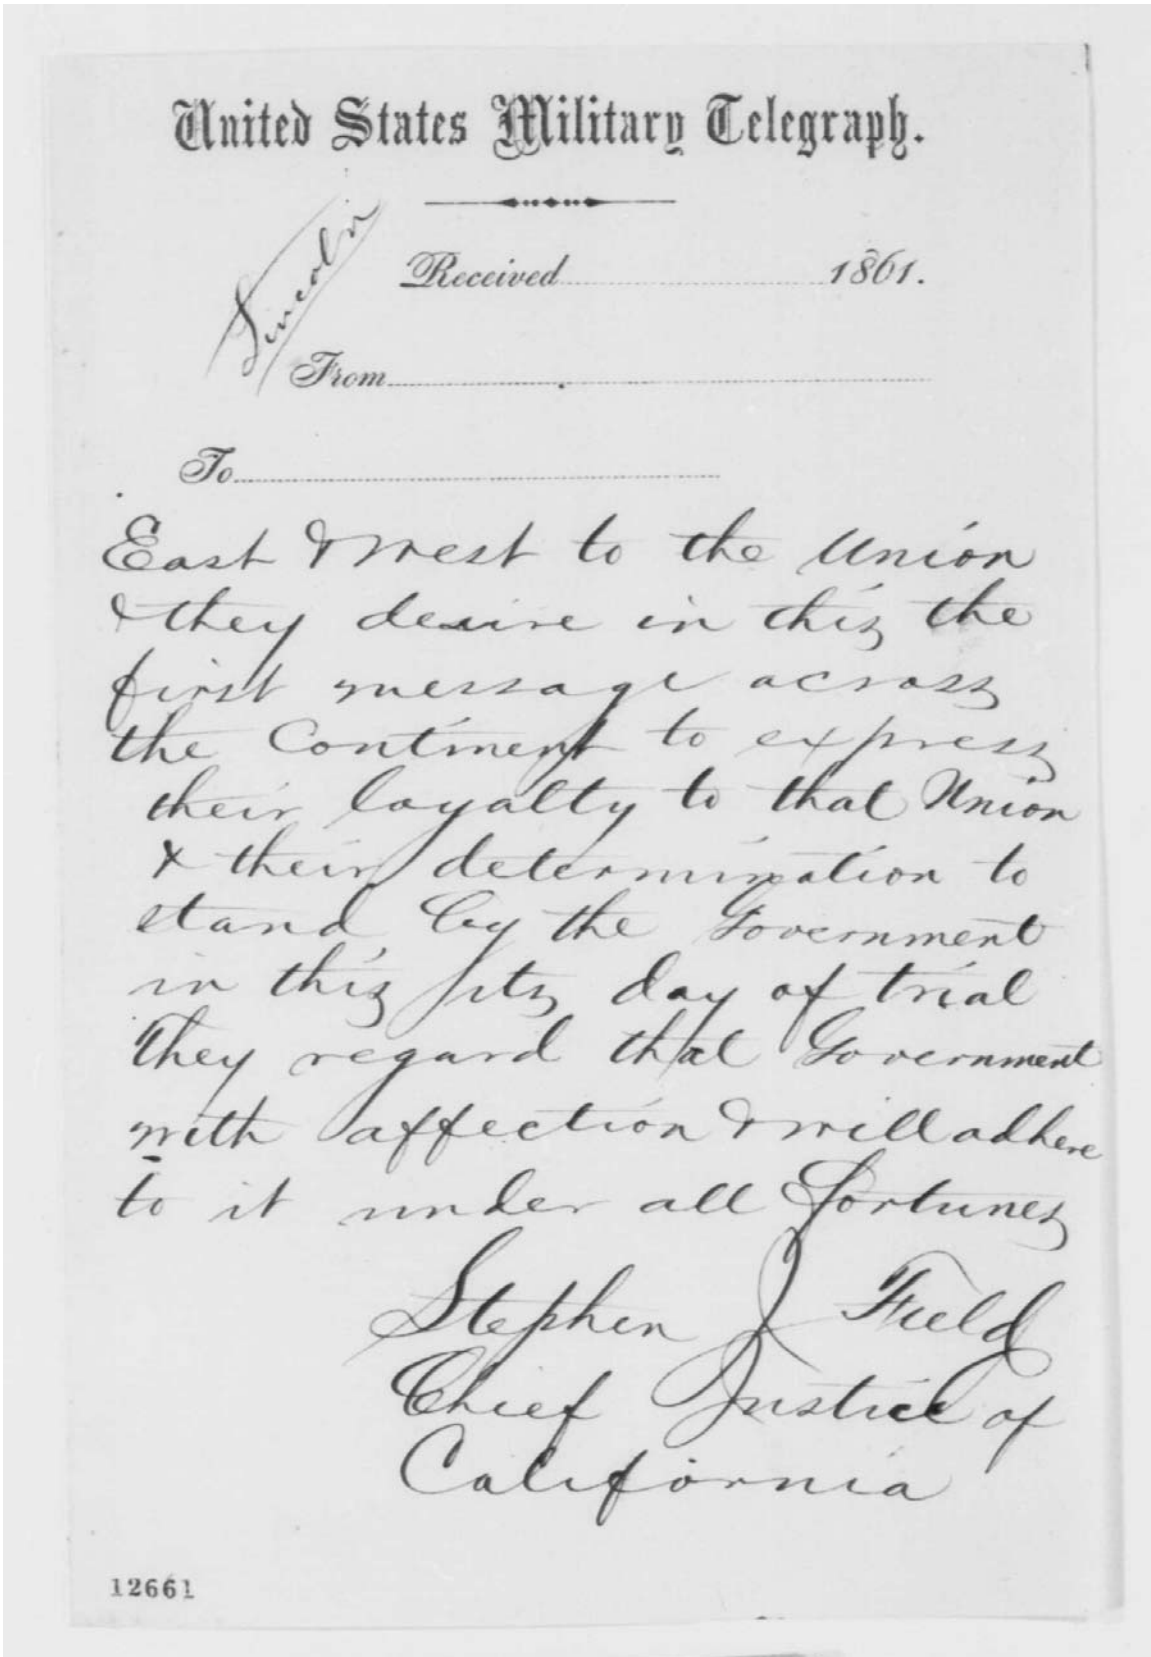 United States Military Telegraph.
Lincoln
Received 1861.
From
To
East & West to the Union
& they desire in this the
first message across
the Continent to express
their loyalty to that Union
& their determination to
stand by the Government
in this its day of trial
They regard that Government
with affection & will adhere
to it under all fortunes
Stephen J Field
Chief Justice of
California
12661